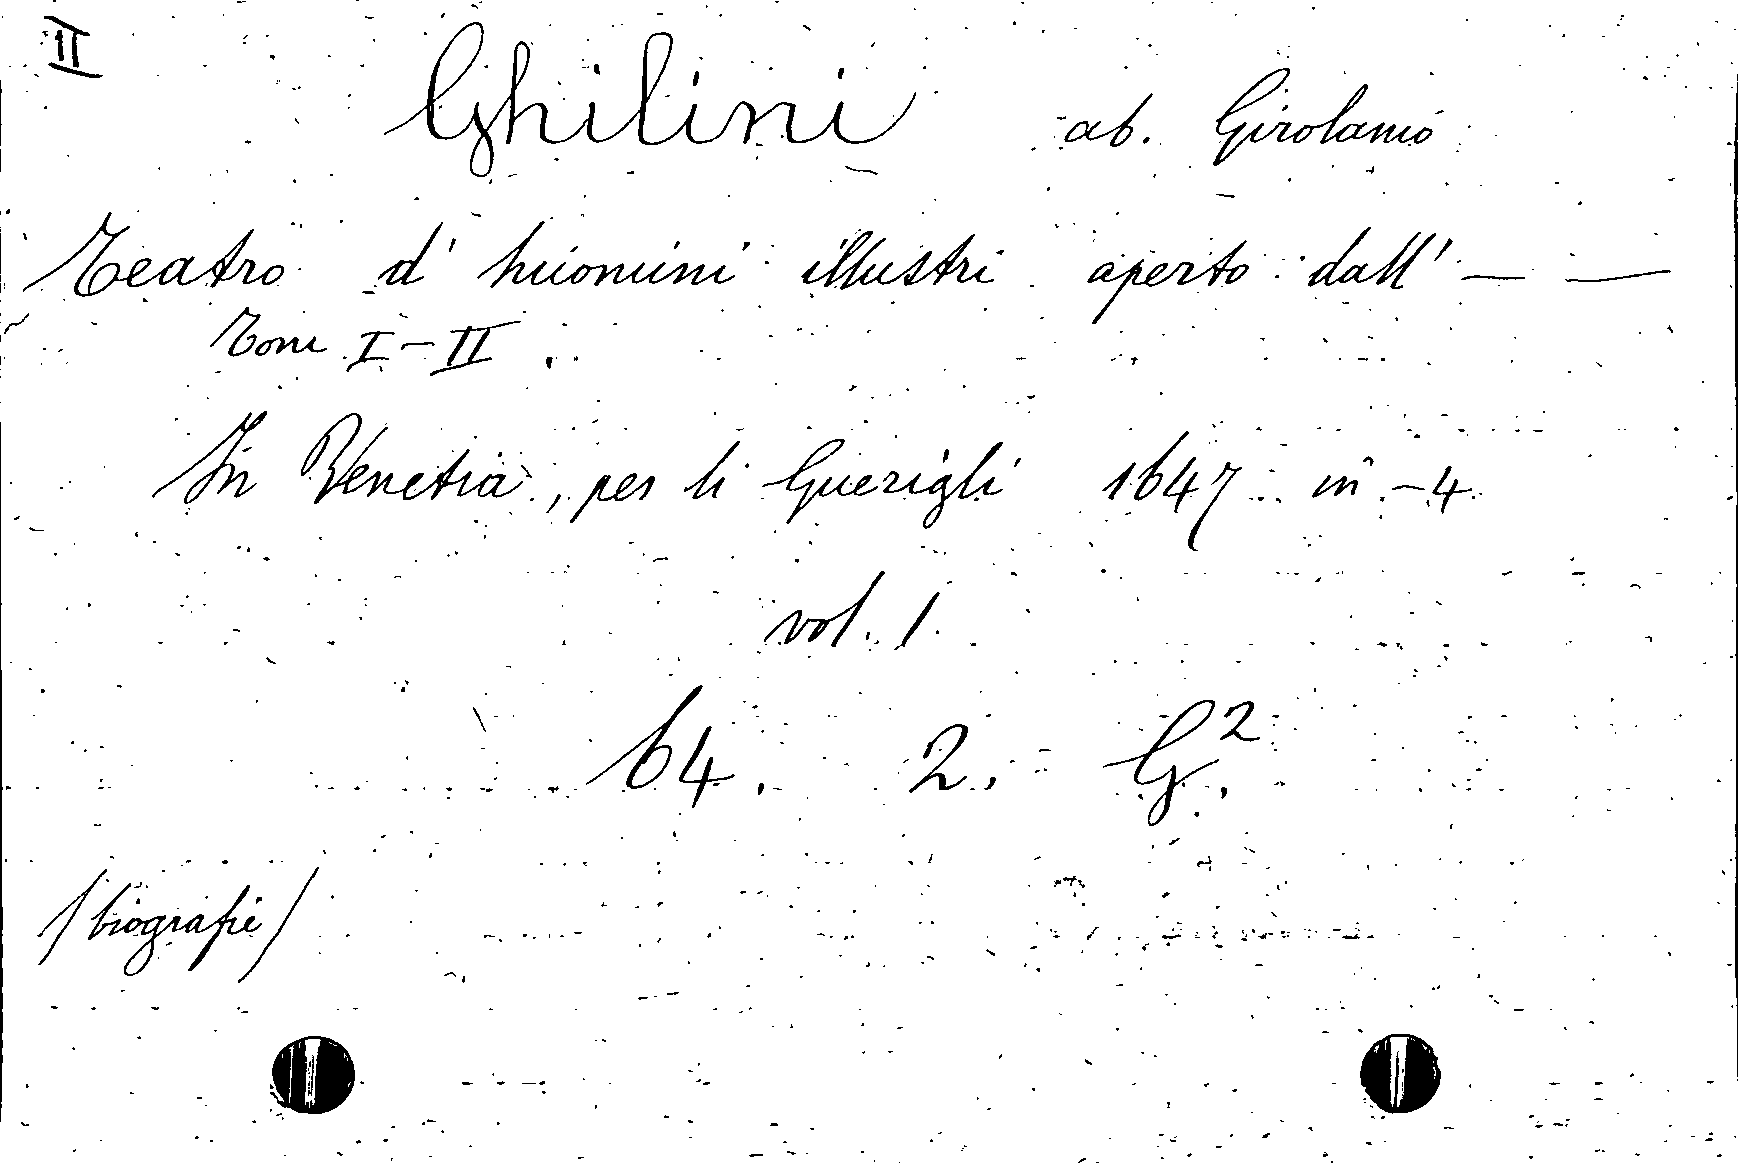 II
Ghilini ab. Girolamo
Teatro d' huomini illustri aperto dall' — —
Tom I-II.
In Venetia, per li Guerigli 1647 in-4
vol. 1
64. 2. G.²
/biografie/